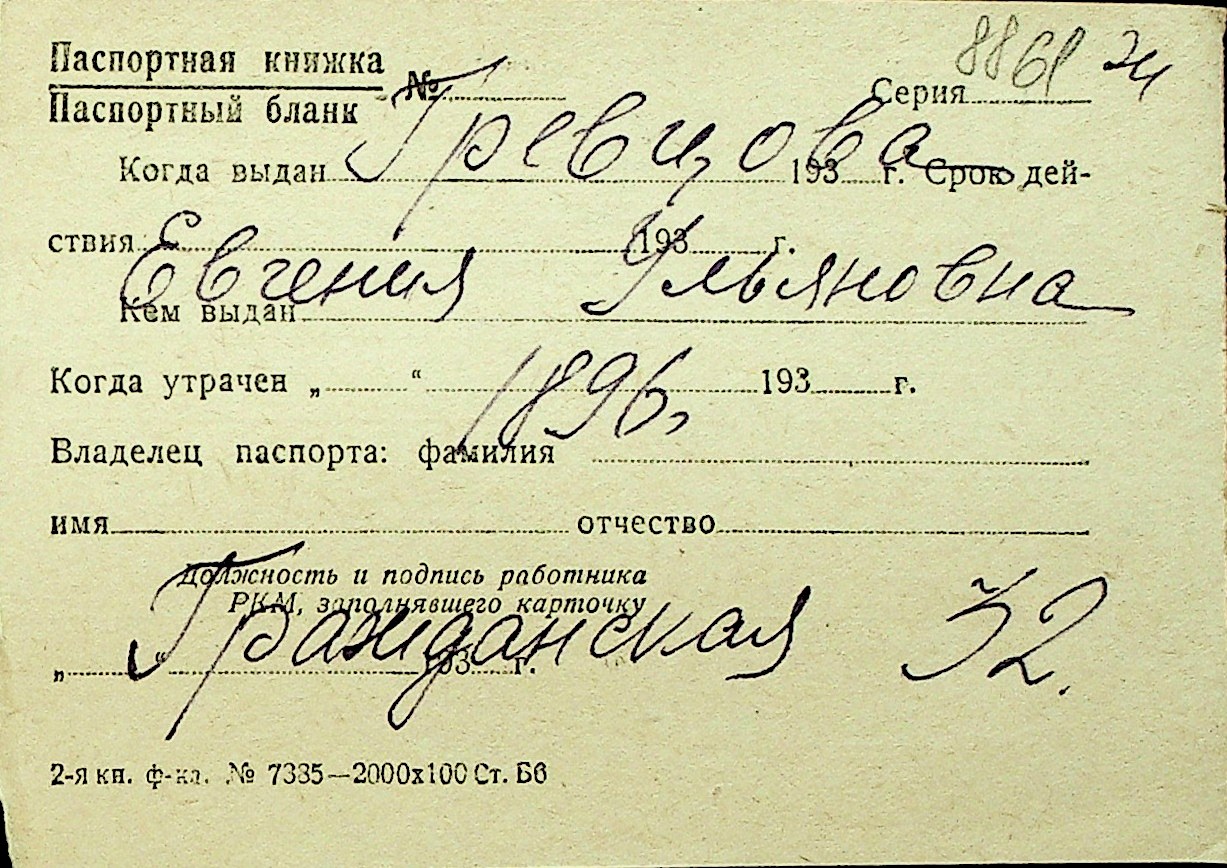 8861 24
Паспортная книжка
Паспортный бланк № Серия
Гревцова
Когда выдан 193 г. Срок дей-
ствия 193 г.
Евгения Ульяновна
Кем выдан
Когда утрачен „ “ 193 г.
1896,
Владелец паспорта: фамилия
имя отчество
Должность и подпись работника
РКМ, заполнявшего карточку
Гражданская 32.
„ “ 193 г.
2-я кн. ф-ка. № 7335—2000х100 Ст. Бб